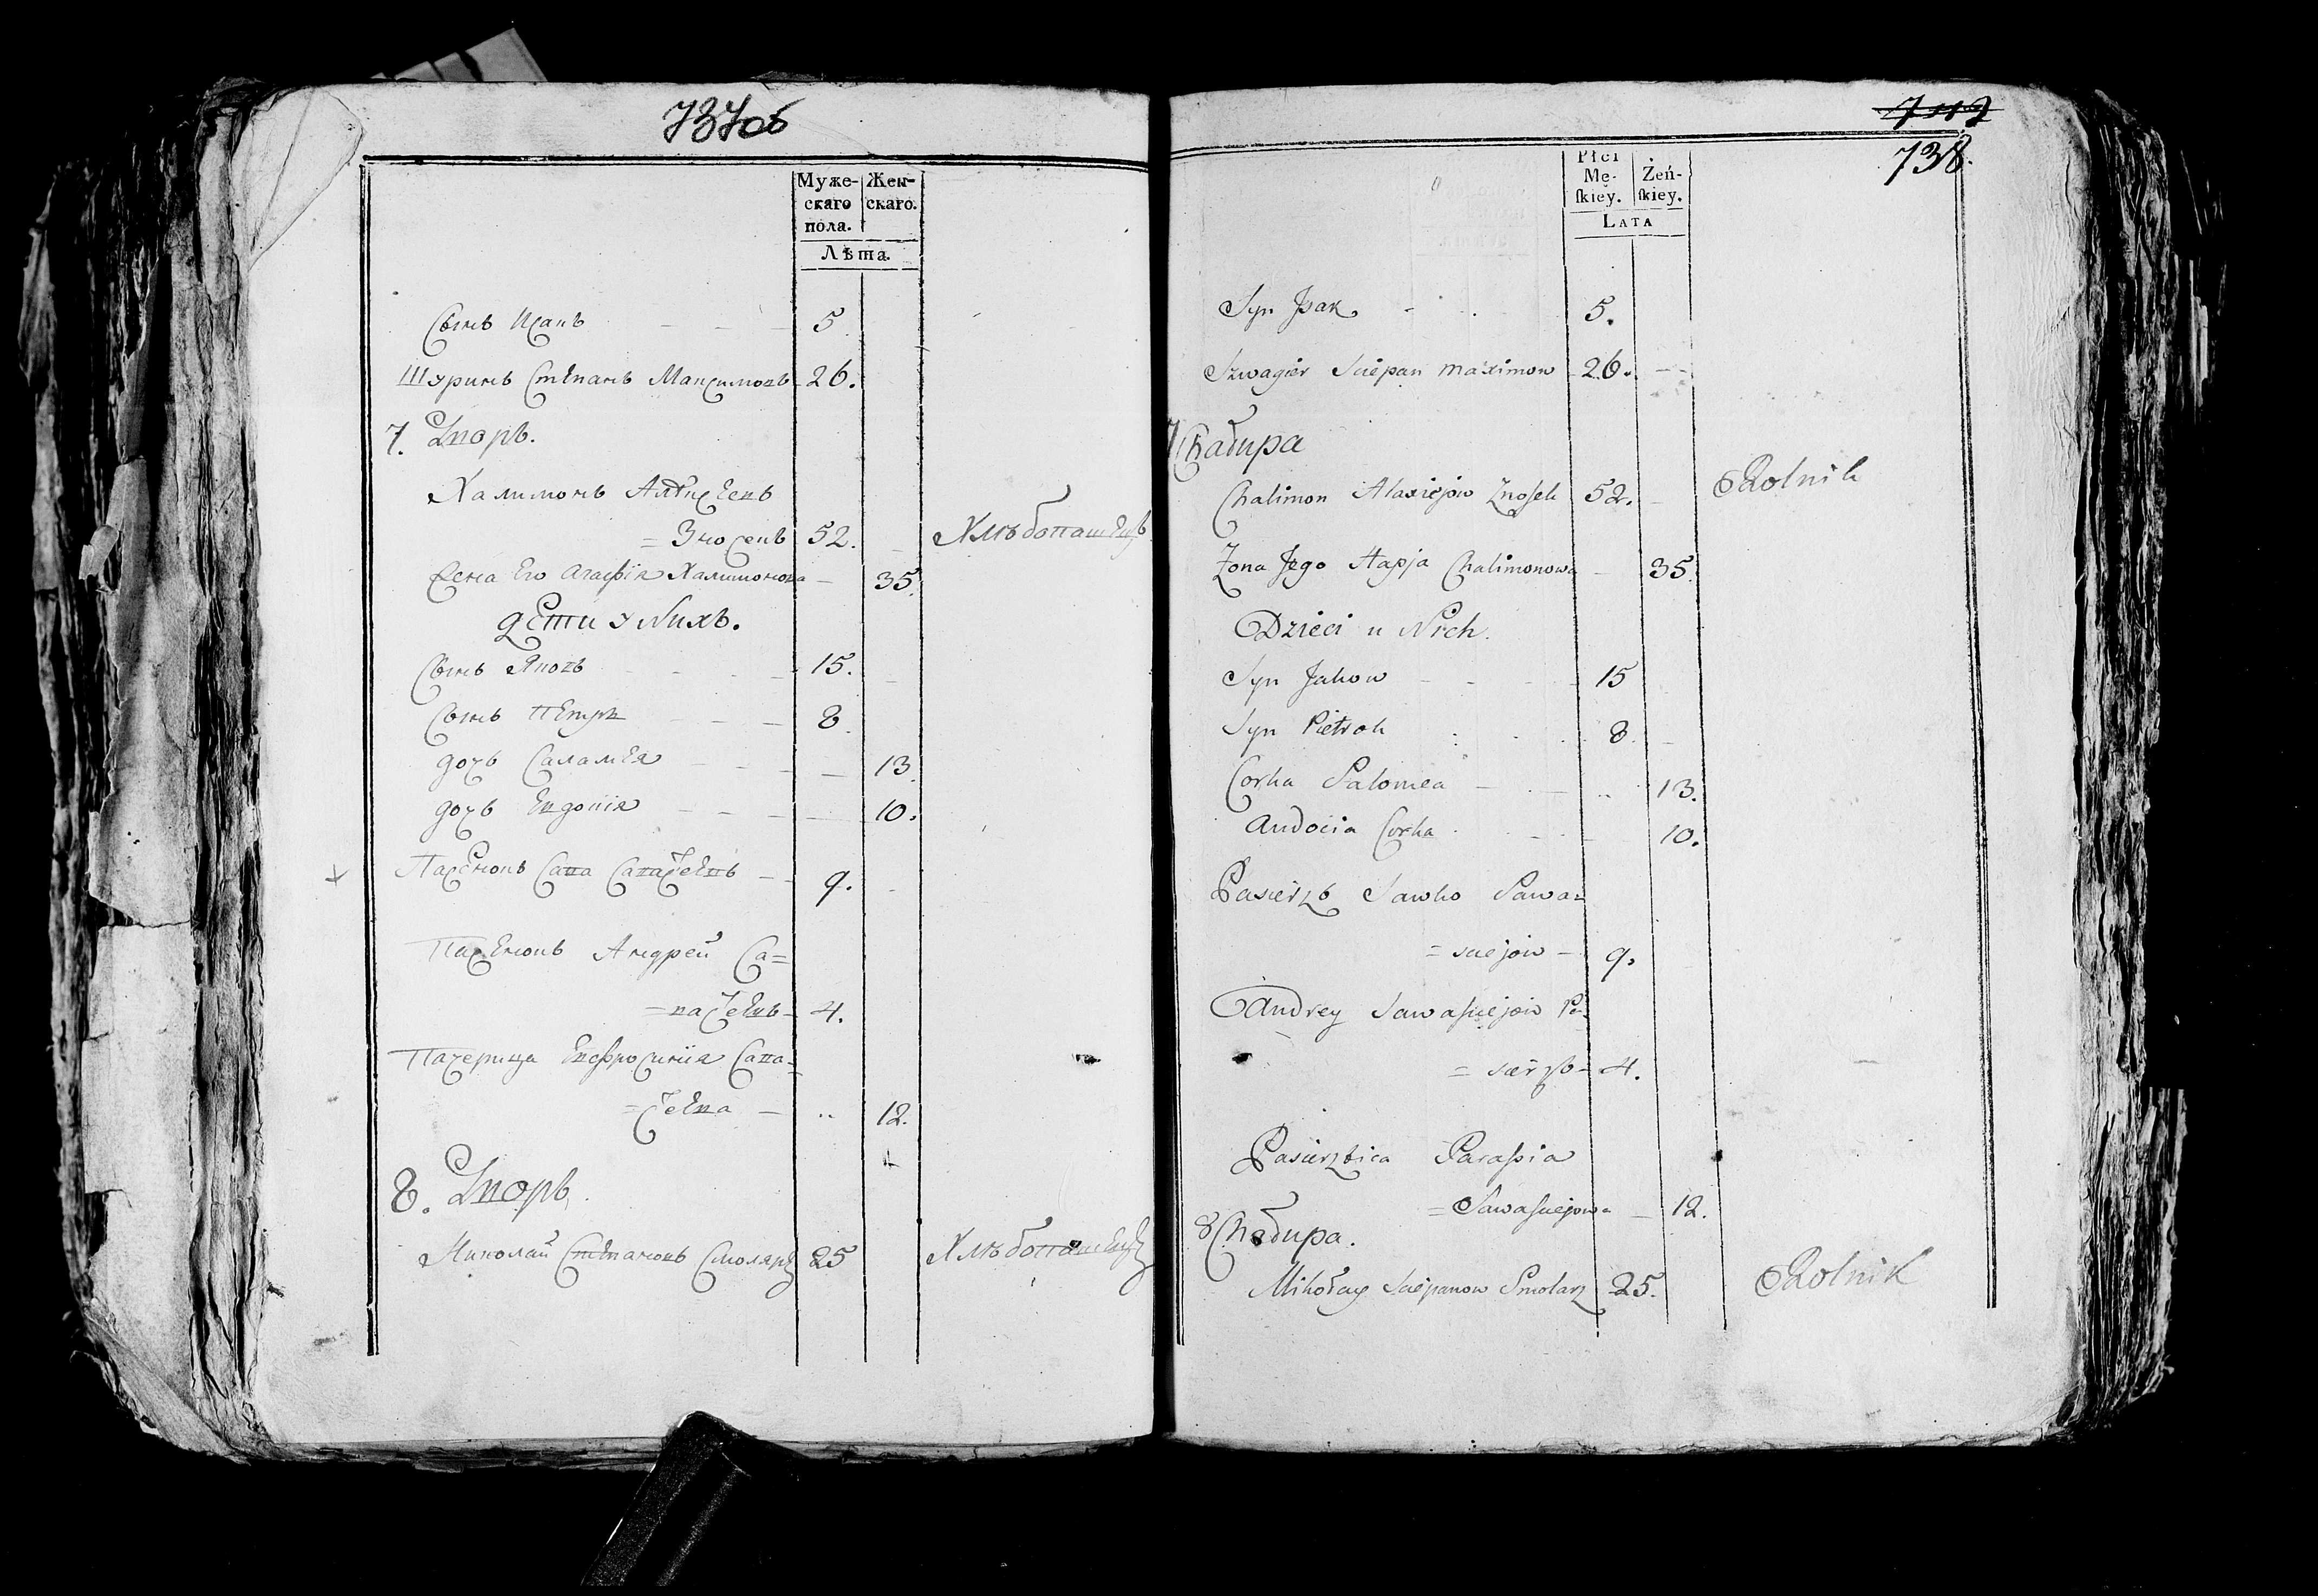 737об
Муже- Жен-
скаго скаго.
пола.
Лѣта.
Сынъ Исакъ 5
Шуринъ Степанъ Максимовъ 26.
7. Дворъ.
Халимонъ Алексеевъ
= Зносекъ 52. Хлѣбопашецъ
Жена Его Агафія Халимонова 35.
Дети у Нихъ.
Сынъ Яковъ 15.
Сынъ Петръ 8.
дочь Саламея 13.
дочь Евдокія 10.
Пасенокъ Сава Савасеевъ 9.
Пасенокъ Андрей Са=
=васеевъ 4.
Пачерица Евфросинія Сава=
=сеева 12.
8. Дворъ.
Николай Степановъ Смоляръ 25 Хлѣбопашецъ
747
738.
Płci
Mę- Żeń-
ſkiey. ſkiey.
LATA
Syn Jsak 5.
Szwagier Sciepan Maximow 26.
7 Chałupa
Chalimon Alaxiejow Znosek 52. Rolnik
Zona Jego Hapja Chalimonowa 35.
Dzieci u Nich.
Syn Jakow 15
Syn Pietrok 8.
Corka Salomea 13.
Andocia Corka 10.
Pasierzb Sawko Sawa=
= sciejow 9.
Andrey Sawasciejow Pa=
= sierzb 4.
Pasierzbica Parasia
= Sawasciejowa 12.
8 Chałupa.
Mikołay Sciepanow Smolarz 25. Rolnik